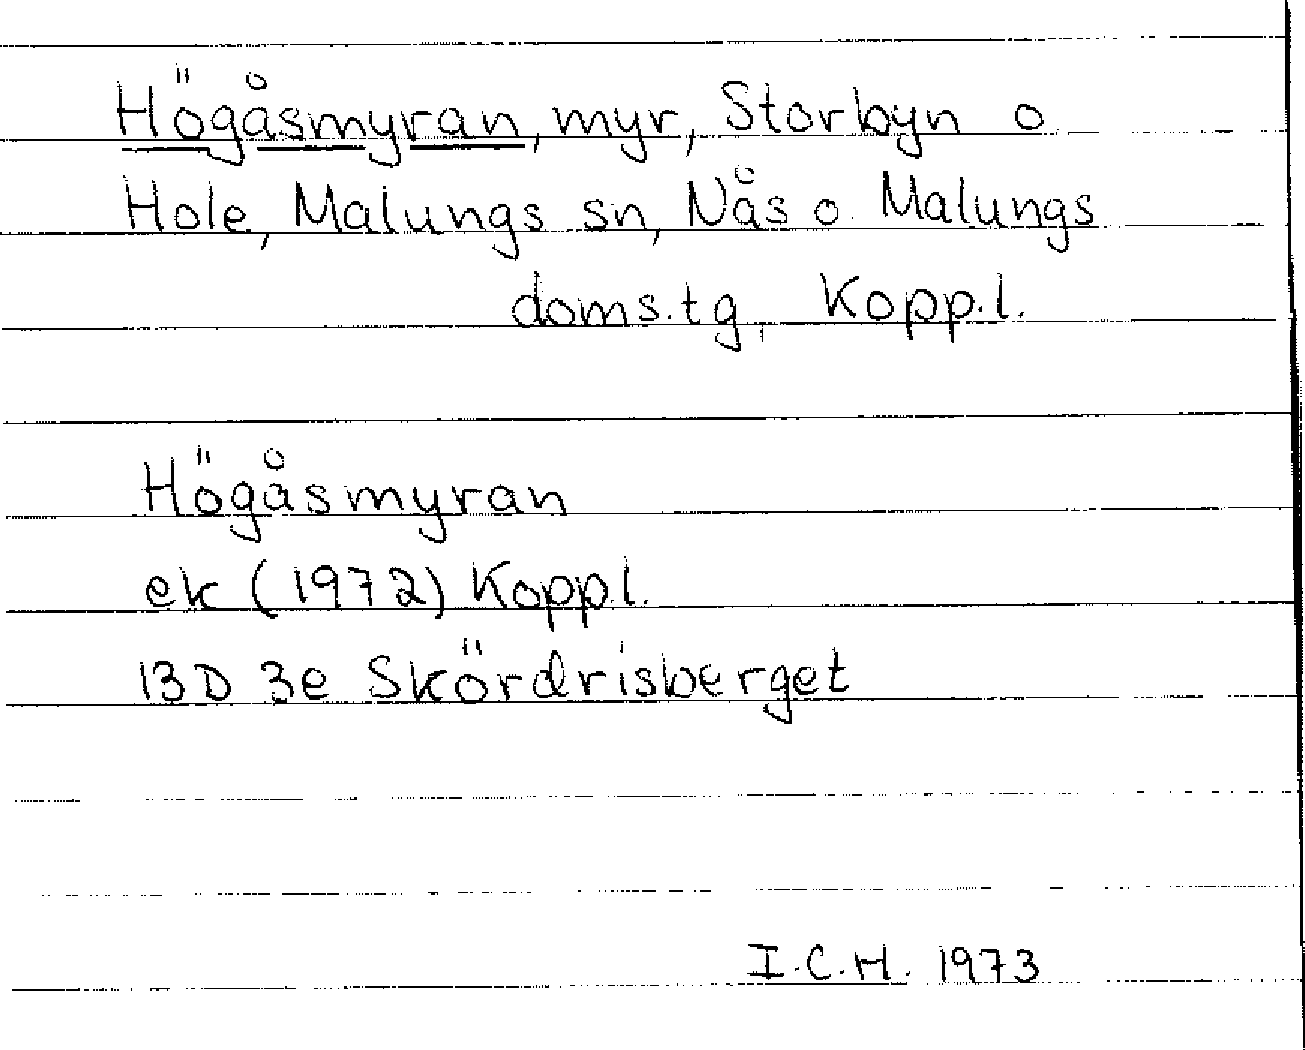 Högåsmyran, myr, Storbyn o
Hole, Malungs sn, Nås o. Malungs
doms.tg, Kopp.l.
Högåsmyran
ek (1972) Kopp.l.
13D 3e Skördrisberget
I.C.H. 1973